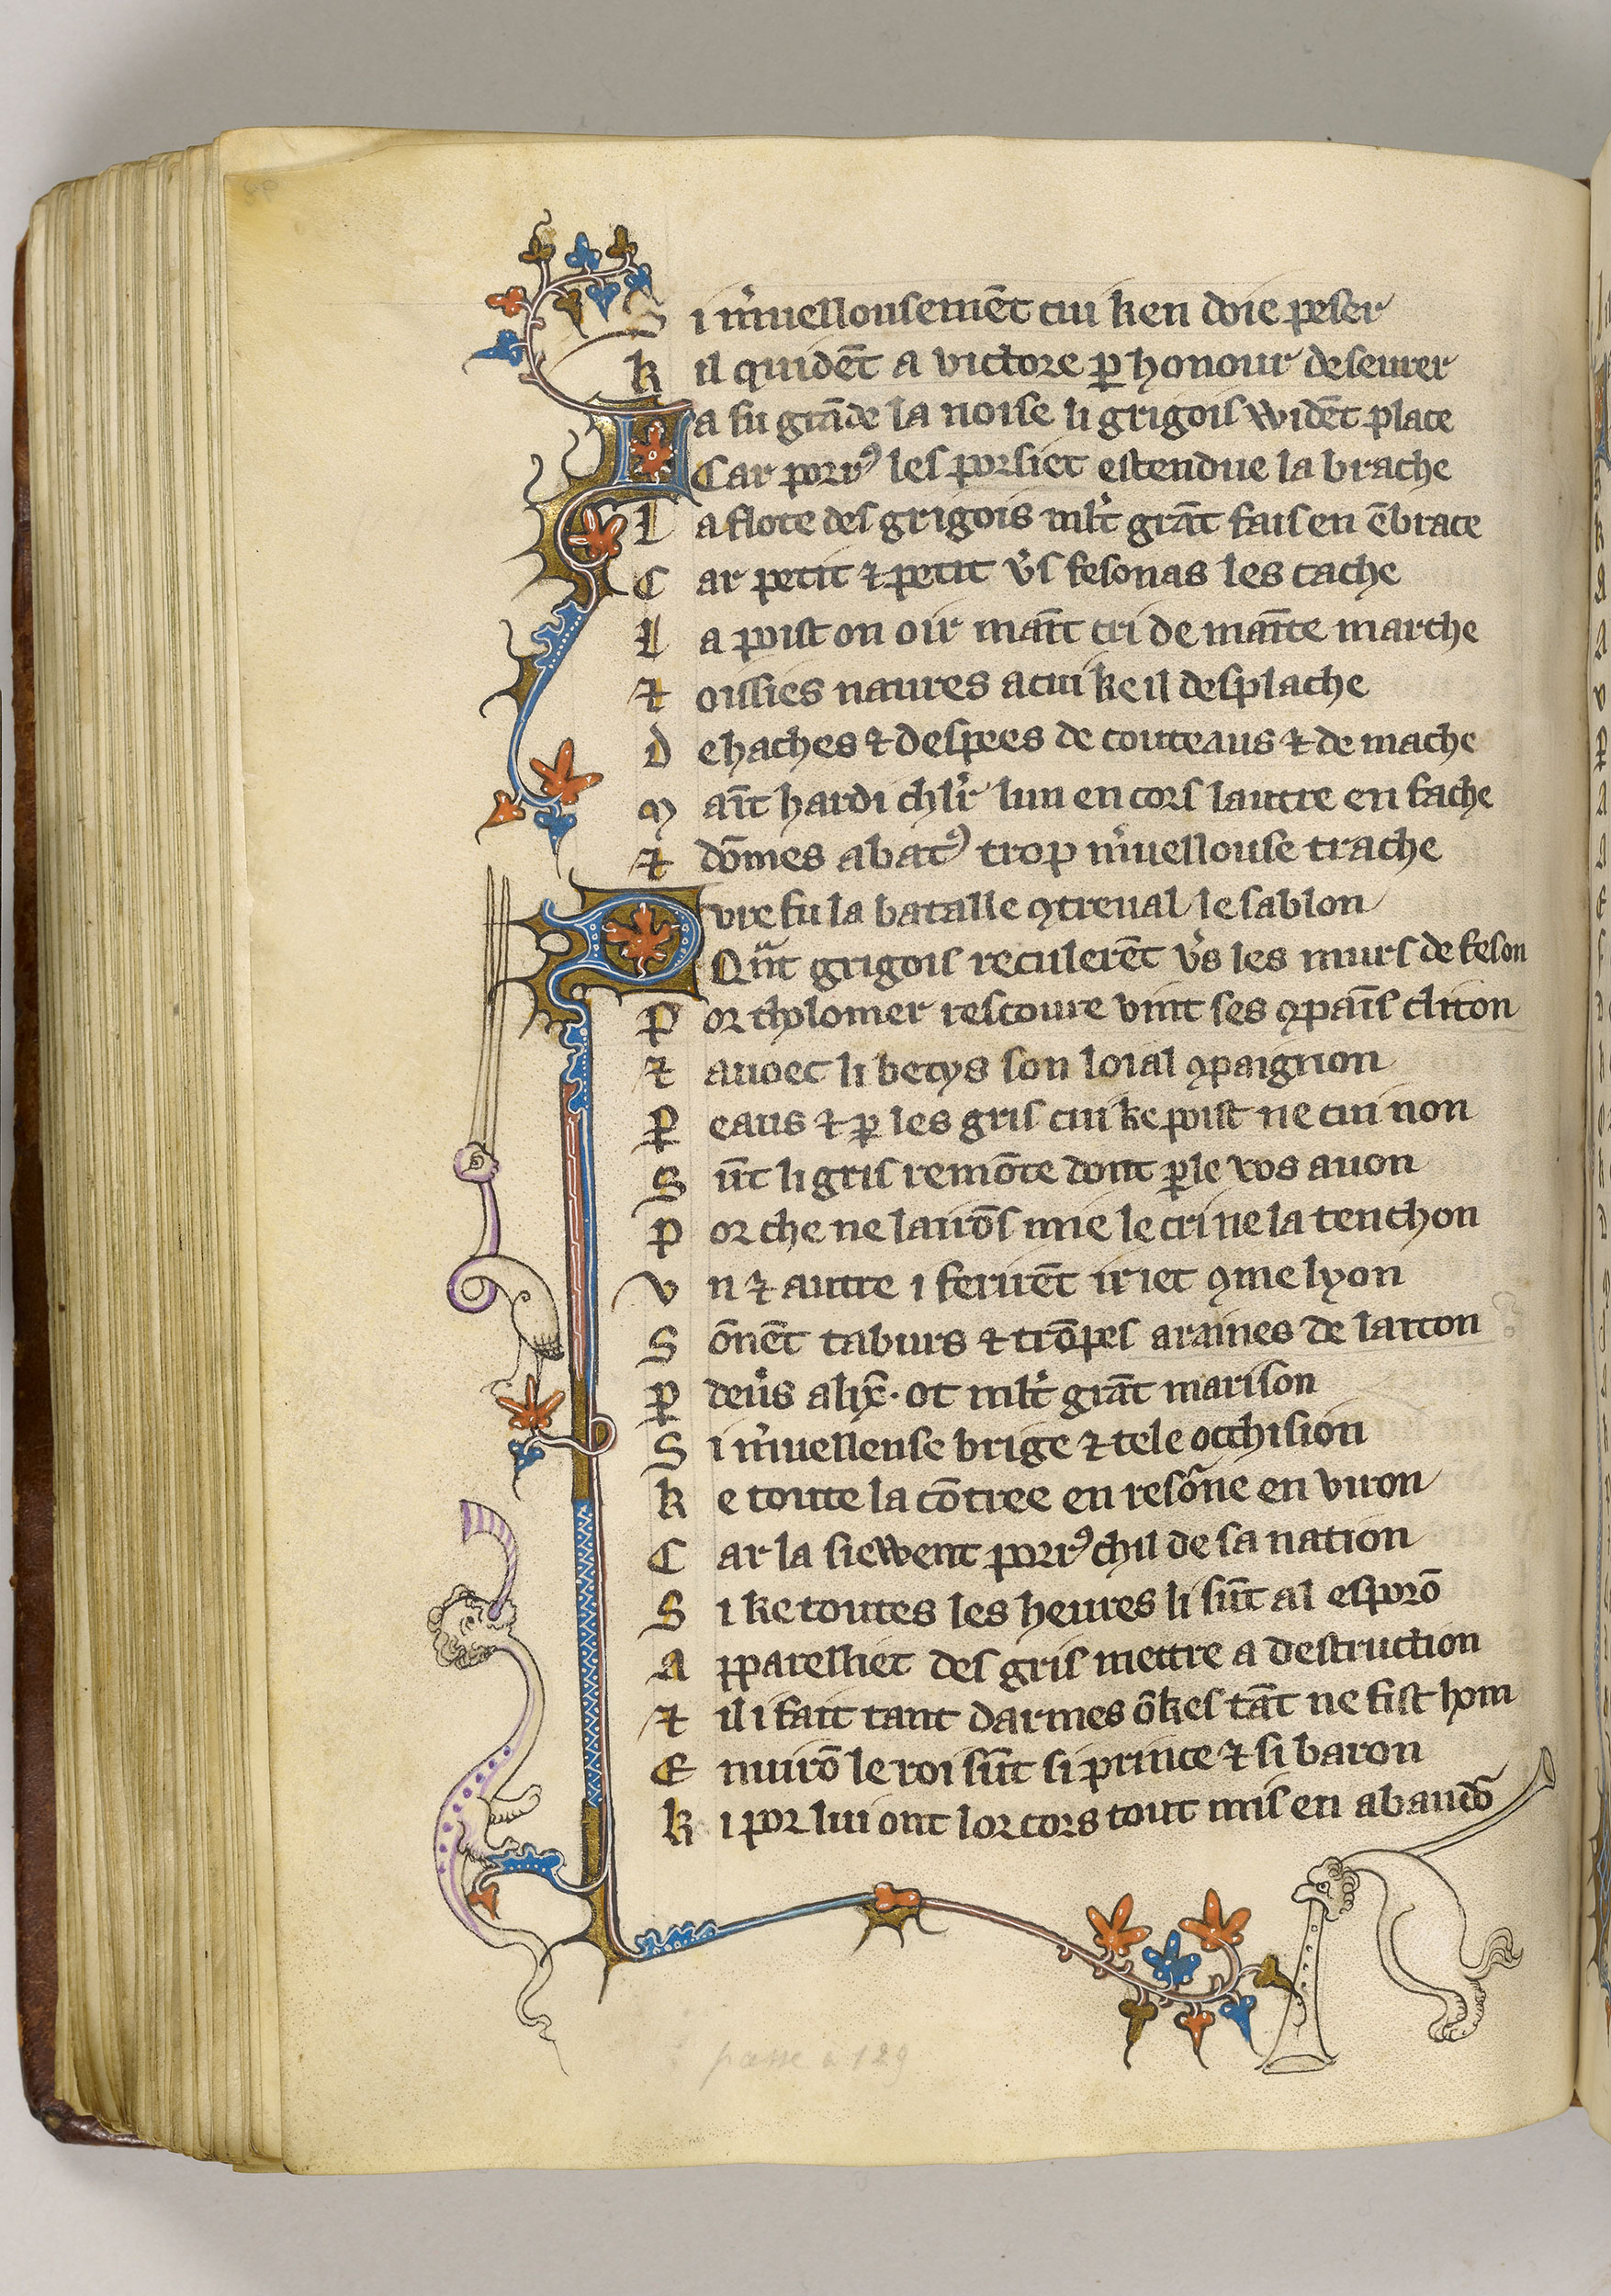 S i mʼuellousemēt cui ken doie peser
k il quidēt a victore ꝑ honour deseurer
L a fu grāde la noise li grigois widēt place
Car porrꝰ les porsiet estendue la brache
L a flote des grigois ml̓t grāt fais en ēbrace
C ar petit ⁊ petit v̓s fesonas les cache
L a poist on oir maīt cri de maīte marche
⁊ oissies naures a cui ke il desplache
d e haches ⁊ despees de couteaus ⁊ de mache
M aīt hardi chl̓r lun en cors lautre en fache
⁊ dōmes abatꝰ trop mʼuellouse trache
D vre fu la batalle ꝯtreual le sablon
Qūt grigois reculerēt v̓s les murs de feson
P or tholomer rescoure vint ses ꝯpaīs cliton
⁊ auoec li betys son loial ꝯpaignon
ꝑ eaus ⁊ ꝑ les gris cui ke poist ne cui non
S ūt li gris remōte dont ꝑle vos auon
P or che ne lairōs mie le cri ne la tenchon
v n ⁊ autre i feruēt iriet ꝯme lyon
S ōnēt taburs ⁊ trōpes araines de laiton
ꝑ deu̓s alix̄· ot ml̓t grāt marison
S i mʼuelleuse brige ⁊ tele occhision
k e toute la cōtree en resōne en viron
C ar la siewent porrꝰ chil de sa nation
S i ke toutes les heures li sūt al esporō
A pparelliet des gris mettre a destruction
⁊ il i fait tant darmes ōkes tāt ne fist hom
E nuirō le roi sūt si prince ⁊ si baron
k i por lui ont lor cors tout mis en abandō
passe a 129